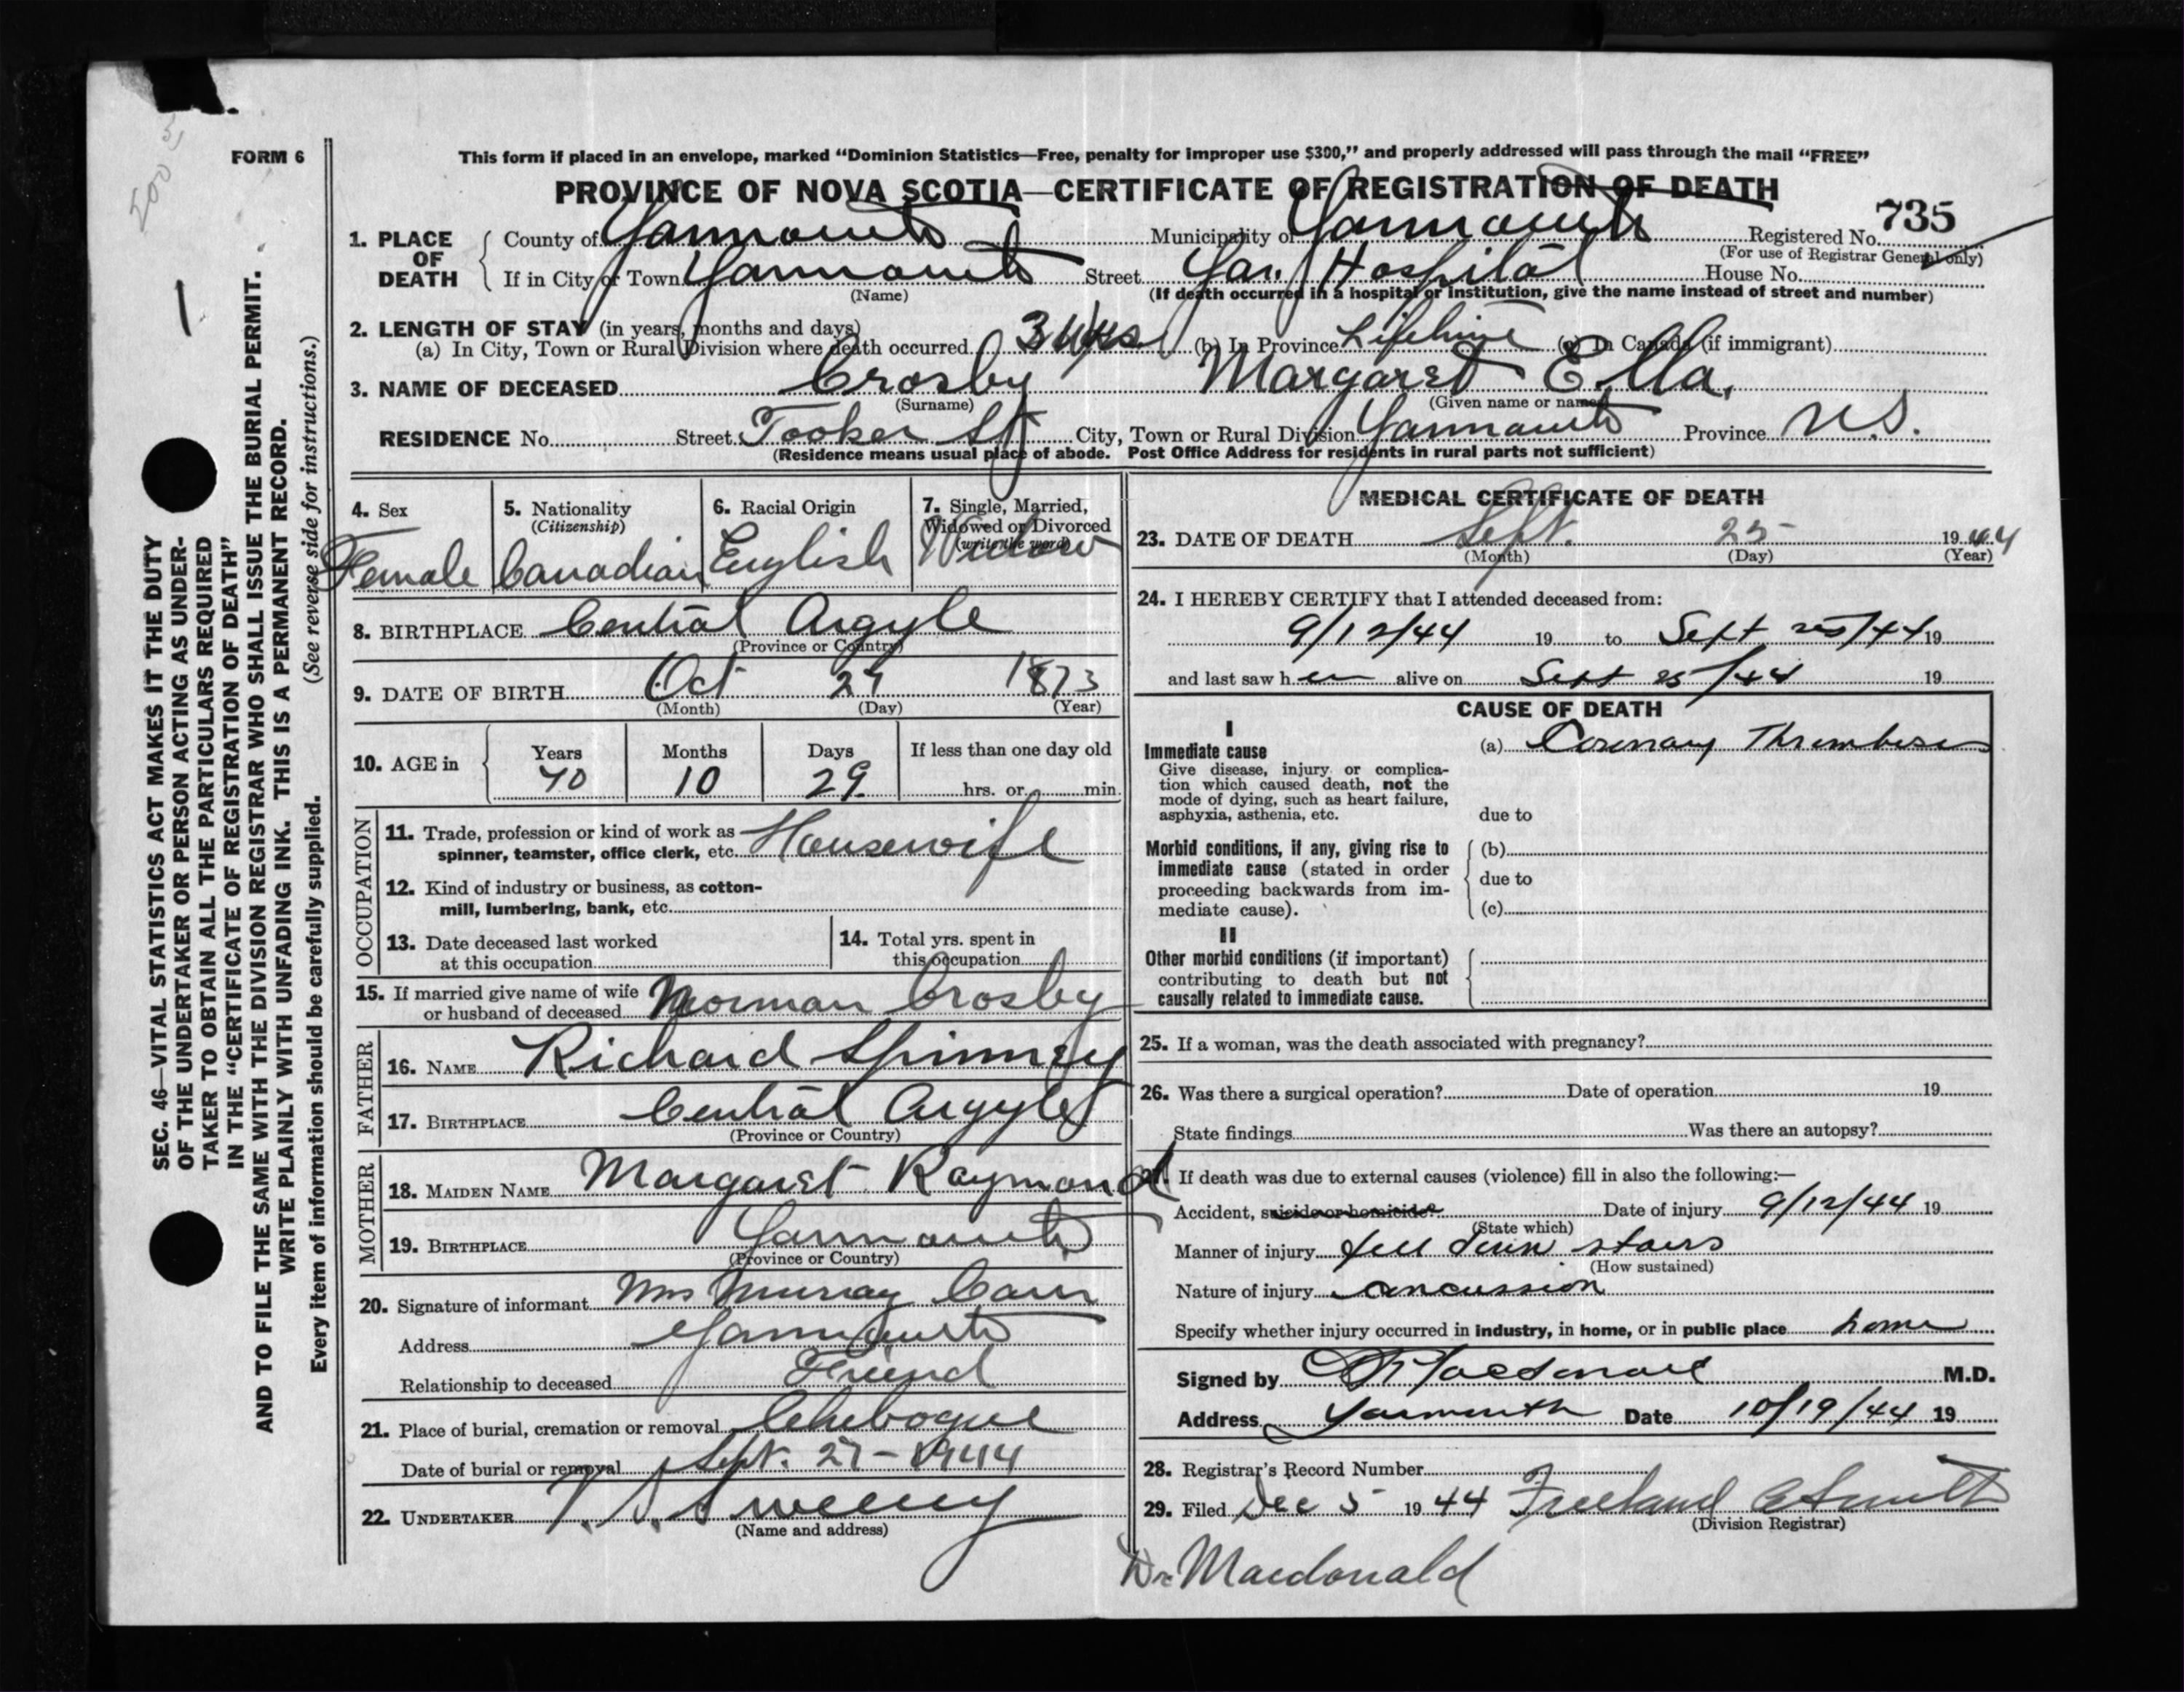 500 3
FORM 6
This form if placed in an envelope, marked “Dominion Statistics—Free, penalty for improper use $300,” and properly addressed will pass through the mail “FREE”
PROVINCE OF NOVA SCOTIA—CERTIFICATE OF REGISTRATION OF DEATH
735
1. PLACE OF DEATH County of Yarmouth Municipality of Yarmouth Registered No.
(For use of Registrar General only)
If in City or Town Yarmouth Street Yar. Hospital House No.
(Name) (If death occurred in a hospital or institution, give the name instead of street and number)
2. LENGTH OF STAY (in years, months and days)
(a) In City, Town or Rural Division where death occurred 3 wks (b) In Province Lifetime (c) In Canada (if immigrant)
3. NAME OF DECEASED Crosby Margaret Ella.
(Surname) (Given name or names)
RESIDENCE No. Street Tooker St City, Town or Rural Division Yarmouth Province N.S.
(Residence means usual place of abode. Post Office Address for residents in rural parts not sufficient)
4. Sex
Female
5. Nationality
(Citizenship)
Canadian
6. Racial Origin
English
7. Single, Married,
Widowed or Divorced
(write the word)
Widow
8. BIRTHPLACE Central Argyle
(Province or Country)
9. DATE OF BIRTH Oct 27 1873
(Month) (Day) (Year)
10. AGE in Years Months Days If less than one day old
70 10 29 hrs. or min.
OCCUPATION
11. Trade, profession or kind of work as
spinner, teamster, office clerk, etc. Housewife
12. Kind of industry or business, as cotton-
mill, lumbering, bank, etc.
13. Date deceased last worked
at this occupation
14. Total yrs. spent in
this occupation
15. If married give name of wife
or husband of deceased Norman Crosby
FATHER
16. NAME Richard Spinney
17. BIRTHPLACE Central Argyle
(Province or Country)
MOTHER
18. MAIDEN NAME Margaret Raymond
19. BIRTHPLACE Yarmouth
(Province or Country)
20. Signature of informant Mrs Murray Cann
Address Yarmouth
Relationship to deceased Friend
21. Place of burial, cremation or removal Chebogue
Date of burial or removal Sept. 27-1944
22. UNDERTAKER V. S. Sweeny
(Name and address)
MEDICAL CERTIFICATE OF DEATH
23. DATE OF DEATH Sept. 25 1944
(Month) (Day) (Year)
24. I HEREBY CERTIFY that I attended deceased from:
9/12/44 19 to Sept 25/44 19
and last saw her alive on Sept 25/44 19
CAUSE OF DEATH
I
Immediate cause
Give disease, injury or complica-
tion which caused death, not the
mode of dying, such as heart failure,
asphyxia, asthenia, etc.
(a) Coronary Thrombosis
due to
Morbid conditions, if any, giving rise to
immediate cause (stated in order
proceeding backwards from im-
mediate cause).
(b)
due to
(c)
II
Other morbid conditions (if important)
contributing to death but not
causally related to immediate cause.
25. If a woman, was the death associated with pregnancy?
26. Was there a surgical operation? Date of operation 19
State findings Was there an autopsy?
27. If death was due to external causes (violence) fill in also the following:—
Accident, suicide or homicide? Date of injury 9/12/44 19
(State which)
Manner of injury fell down stairs
(How sustained)
Nature of injury concussion
Specify whether injury occurred in industry, in home, or in public place home
Signed by Macdonald M.D.
Address Yarmouth Date 10/19/44 19
28. Registrar's Record Number
29. Filed Dec 5 1944 Freeland A Smith
(Division Registrar)
Dr Macdonald
SEC. 46—VITAL STATISTICS ACT MAKES IT THE DUTY
OF THE UNDERTAKER OR PERSON ACTING AS UNDER-
TAKER TO OBTAIN ALL THE PARTICULARS REQUIRED
IN THE “CERTIFICATE OF REGISTRATION OF DEATH”
AND TO FILE THE SAME WITH THE DIVISION REGISTRAR WHO SHALL ISSUE THE BURIAL PERMIT.
WRITE PLAINLY WITH UNFADING INK. THIS IS A PERMANENT RECORD.
Every item of information should be carefully supplied. (See reverse side for instructions.)